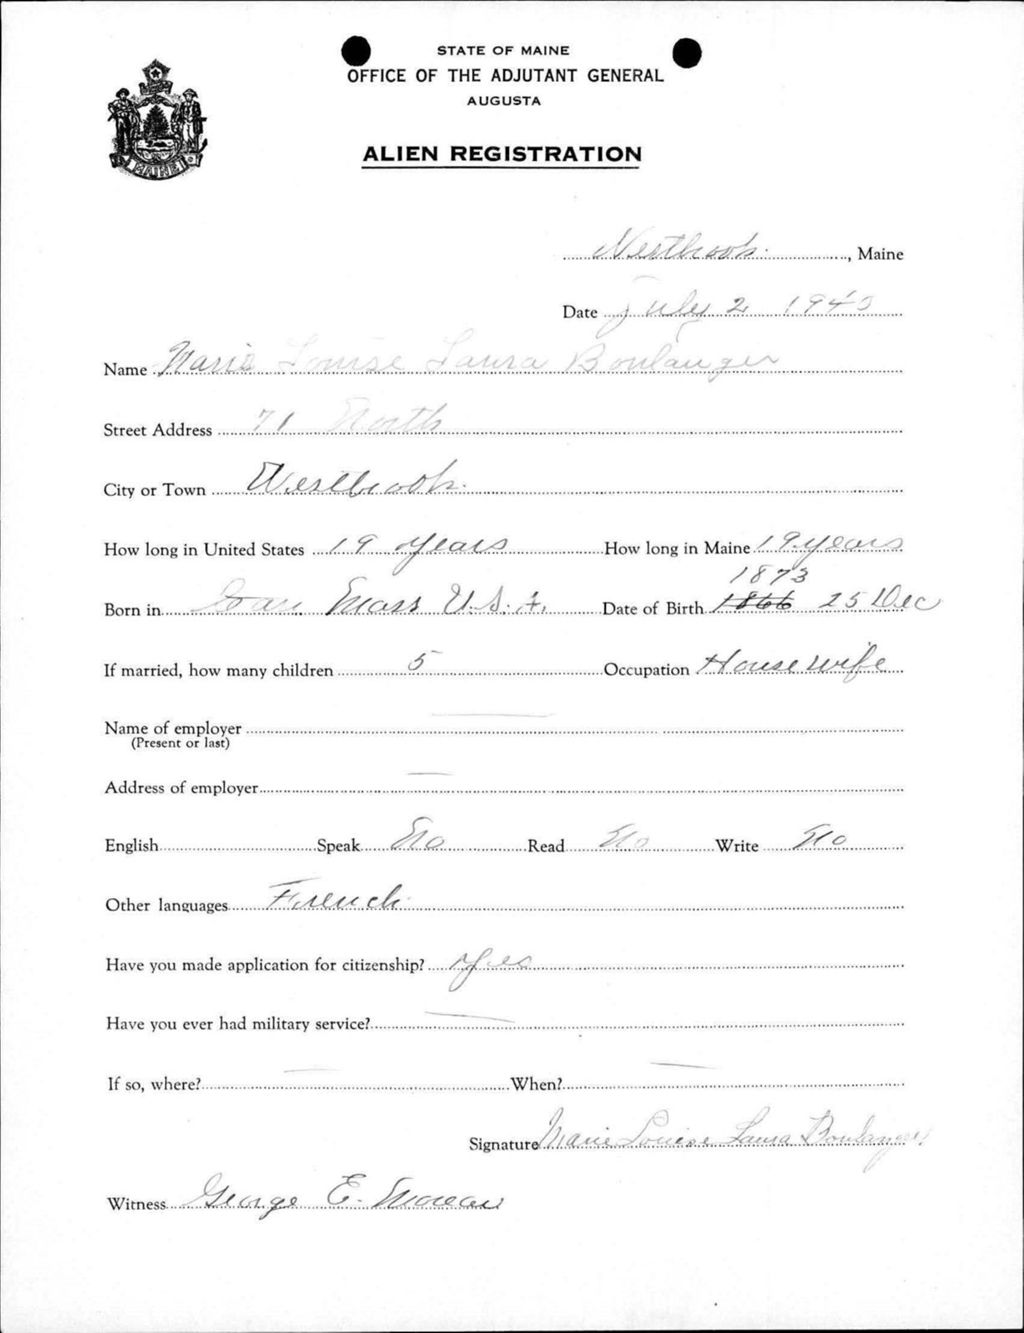 STATE OF MAINE
OFFICE OF THE ADJUTANT GENERAL
AUGUSTA
ALIEN REGISTRATION
MAINE
Westbrook, Maine
Date July 2 1940
Name Marie Louise Laura Boulanger
Street Address 71 North
City or Town Westbrook
How long in United States 19 years How long in Maine 19 years
1873
Born in Mass U.S.A. Date of Birth 1866 25 Dec
If married, how many children 5 Occupation Housewife
Name of employer
(Present or last)
Address of employer
English Speak No Read No Write No
Other languages French
Have you made application for citizenship? Yes
Have you ever had military service?
If so, where? When?
Signature Marie Louise Laura Boulanger
Witness George E. Moreau